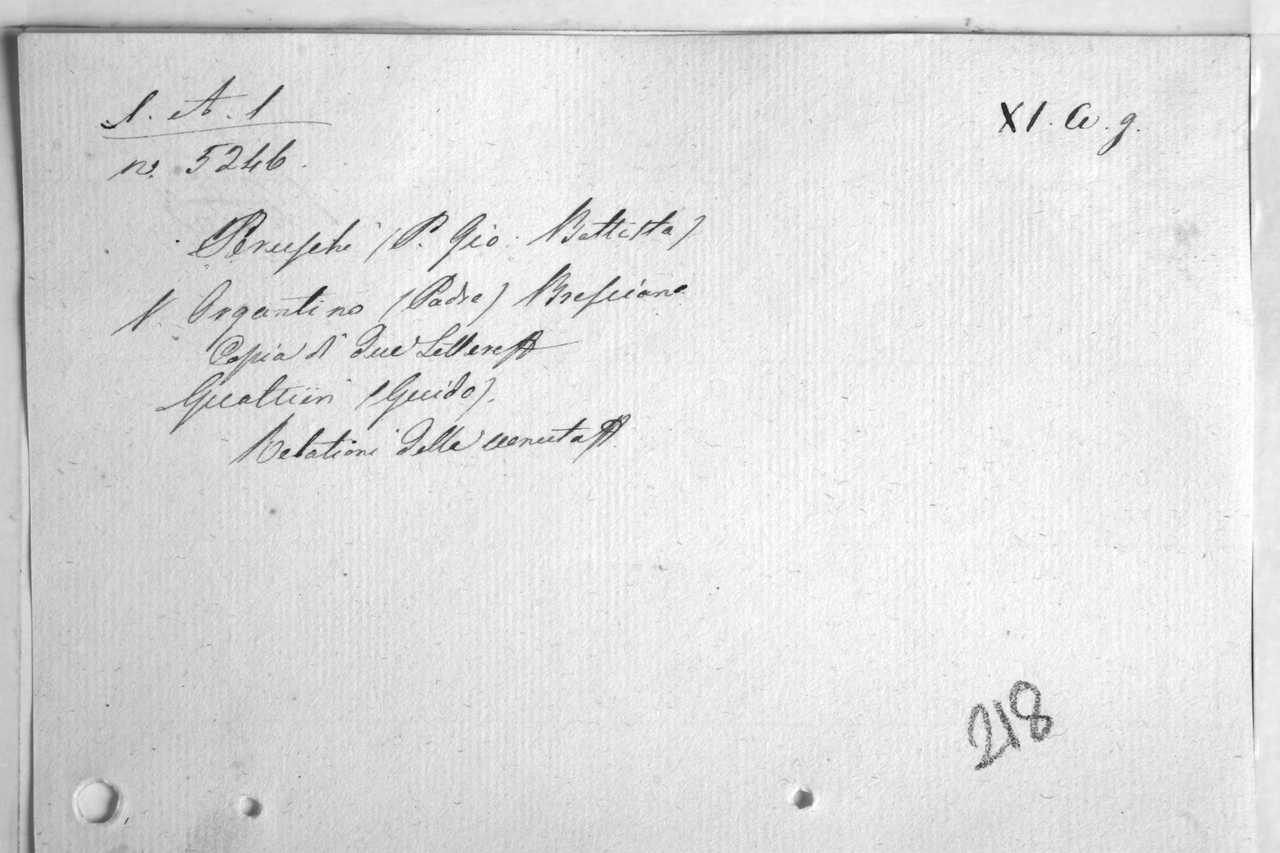 1. A. 1
XI. a. g.
n. 5246.
Peruschi (P. Gio. Battista)
V. Organtino (Padre) Bresciano
Copia di due Lettere
Gualtieri (Guido).
Relationi della venuta
218